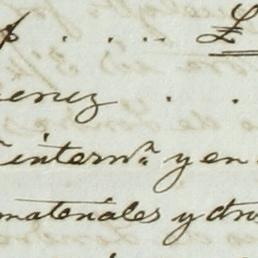 . . . . £
enez . .
intern.ª y en
materiales y otros